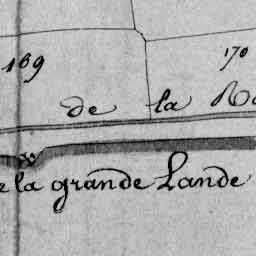 169
170
de la
la grande Lande